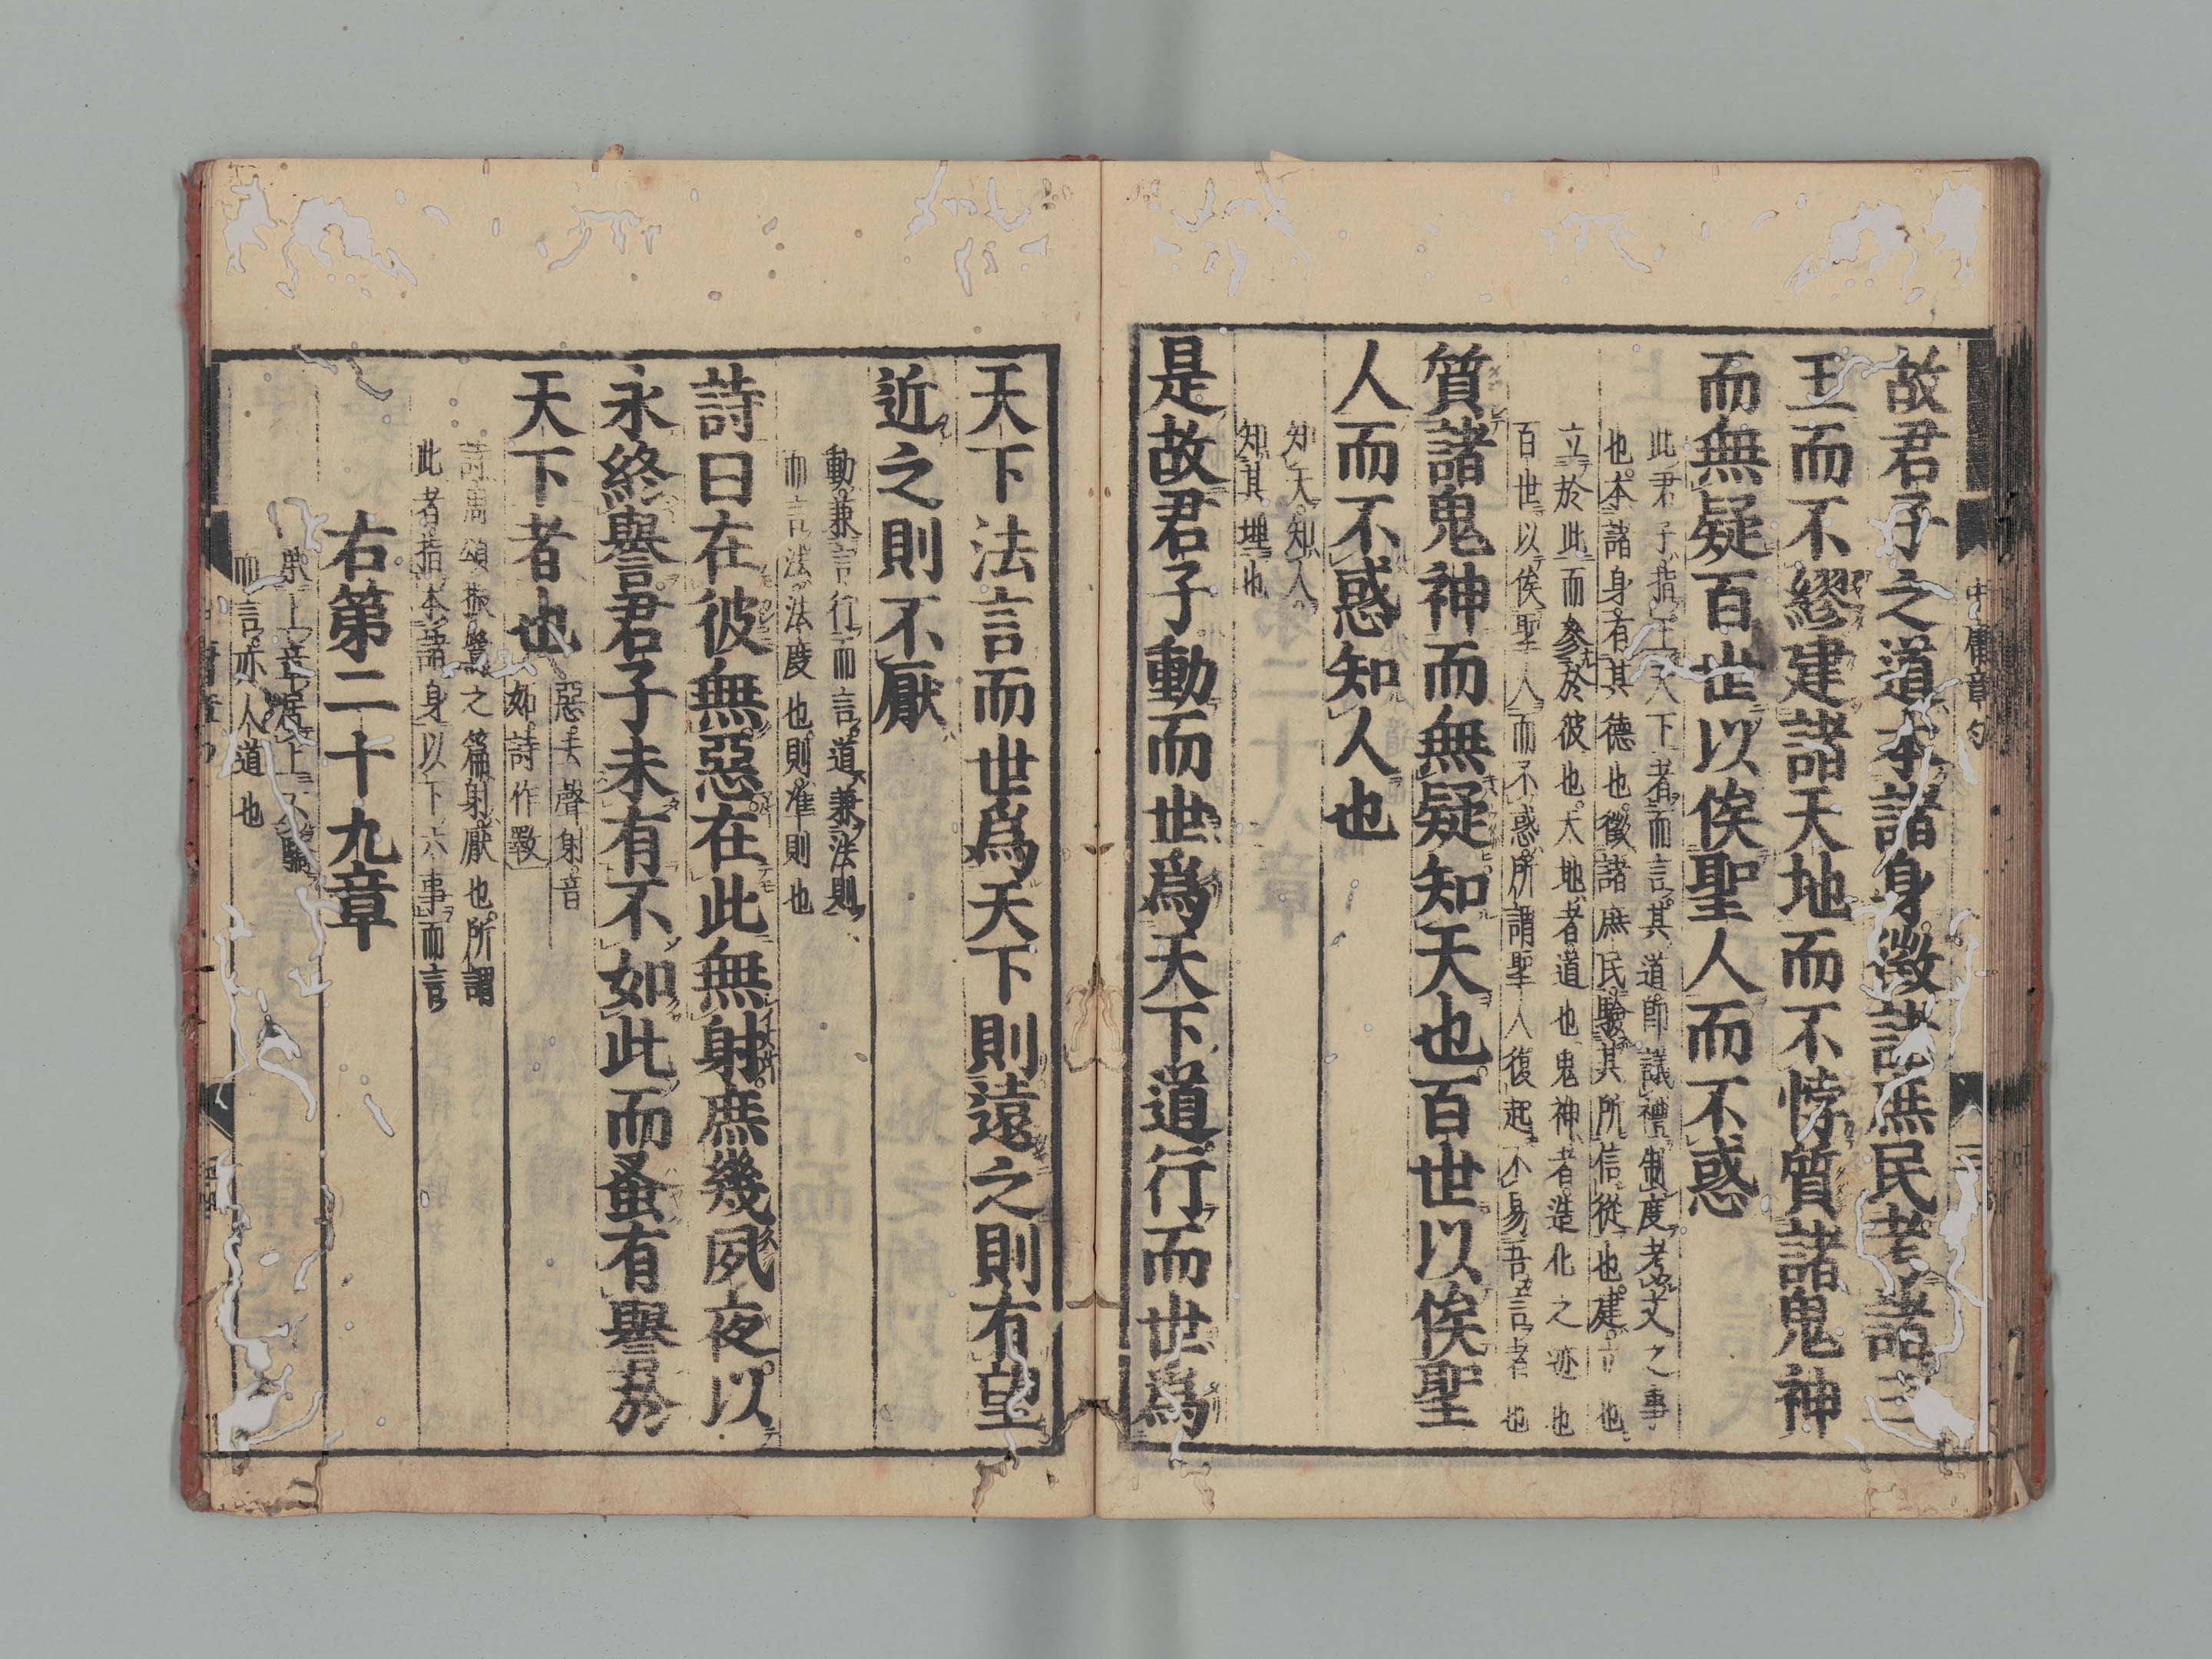 故君子之道本諸身徵諸庶民考諸三
王而不繆建諸天地而不悖質諸鬼神
而無疑百世以俟聖人而不惑
此君子指王天下者而言其道即議禮制度考文之事
也本諸身有其德也徵諸庶民驗其所信從也建立也
立於此而參於彼也天地者道也鬼神者造化之迹也
百世以俟聖人而不惑所謂聖人復起不易吾言者也
質諸鬼神而無疑知天也百世以俟聖
人而不惑知人也
知天知人
知其理也
是故君子動而世爲天下道行而世爲
天下法言而世爲天下則遠之則有望
近之則不厭
動兼言行而言道兼法則
而言法法度也則準則也
詩曰在彼無惡在此無射庶幾夙夜以
永終譽君子未有不如此而蚤有譽於
天下者也
惡去聲射音
妬詩作斁
詩周頌振鷺之篇射厭也所謂
此者指本諸身以下六事而言
右第二十九章
承上章居上不驕
而言亦人道也
中庸章句